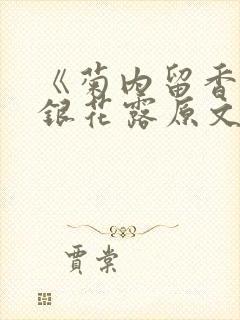 《菊内留香
银花露原文
贾棠